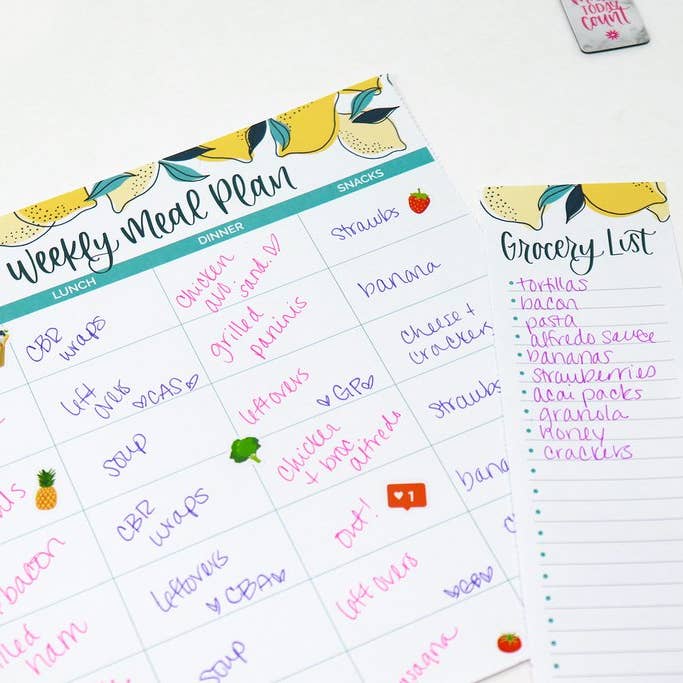 TODAY
count
Weekly Meal Plan
LUNCH
DINNER
SNACKS
CBR
wraps
chicken
avo.
sand.
strawbs
left
overs
CAS
grilled
paninis
banana
soup
leftovers
GP
cheese +
crackers
CBR
wraps
chicken
+ broc
alfredo
strawbs
leftovers
CBA
out!
1
bacon
soup
left overs
ham
Grocery List
tortillas
bacon
pasta
alfredo sauce
bananas
strawberries
acai packs
granola
honey
crackers